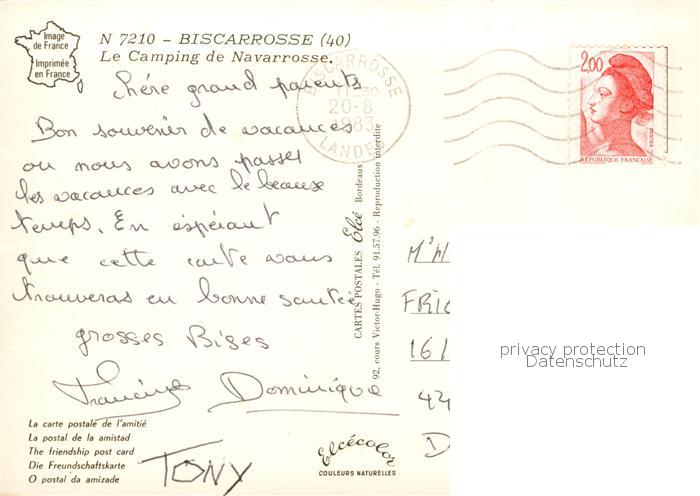 Image
de France
Imprimée
en France
N 7210 - BISCARROSSE (40)
Le Camping de Navarrosse.
BISCARROSSE
11-30
20-8
1983
LANDES
2,00
POSTES
RÉPUBLIQUE FRANÇAISE
chére grand parents
Bon souvenir de vacances
ou nous avons passer
les vacances avec le beause
temps. En espérant
que cette carte vous
trouveras en bonne santée
grosses Bises
Francine Dominique
TONY
CARTES POSTALES Elcé Bordeaux
92, cours Victor-Hugo - Tél. 91.57.96 - Reproduction interdite
FRIC
161
D
privacy protection
Datenschutz
La carte postale de l'amitié
La postal de la amistad
The friendship post card
Die Freundschaftskarte
O postal da amizade
Elcécolor
COULEURS NATURELLES